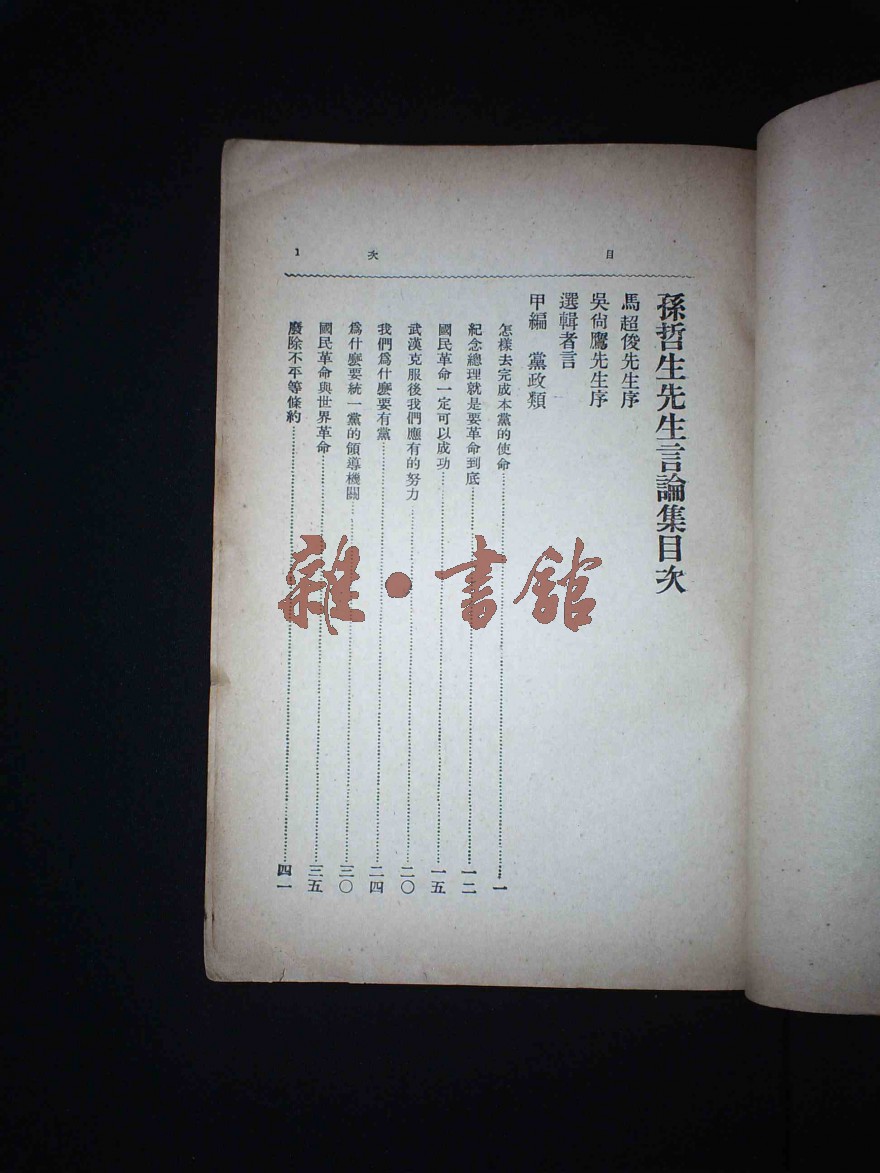 目
次
1
孫哲生先生言論集目次
馬超俊先生序
吳尙鷹先生序
選輯者言
甲編 黨政類
怎樣去完成本黨的使命……一
紀念總理就是要革命到底……一二
國民革命一定可以成功……一五
武漢克服後我們應有的努力……二〇
我們爲什麽要有黨……二四
爲什麽要統一黨的領導機關……三〇
國民革命與世界革命……三五
廢除不平等條約……四一
雜·書館